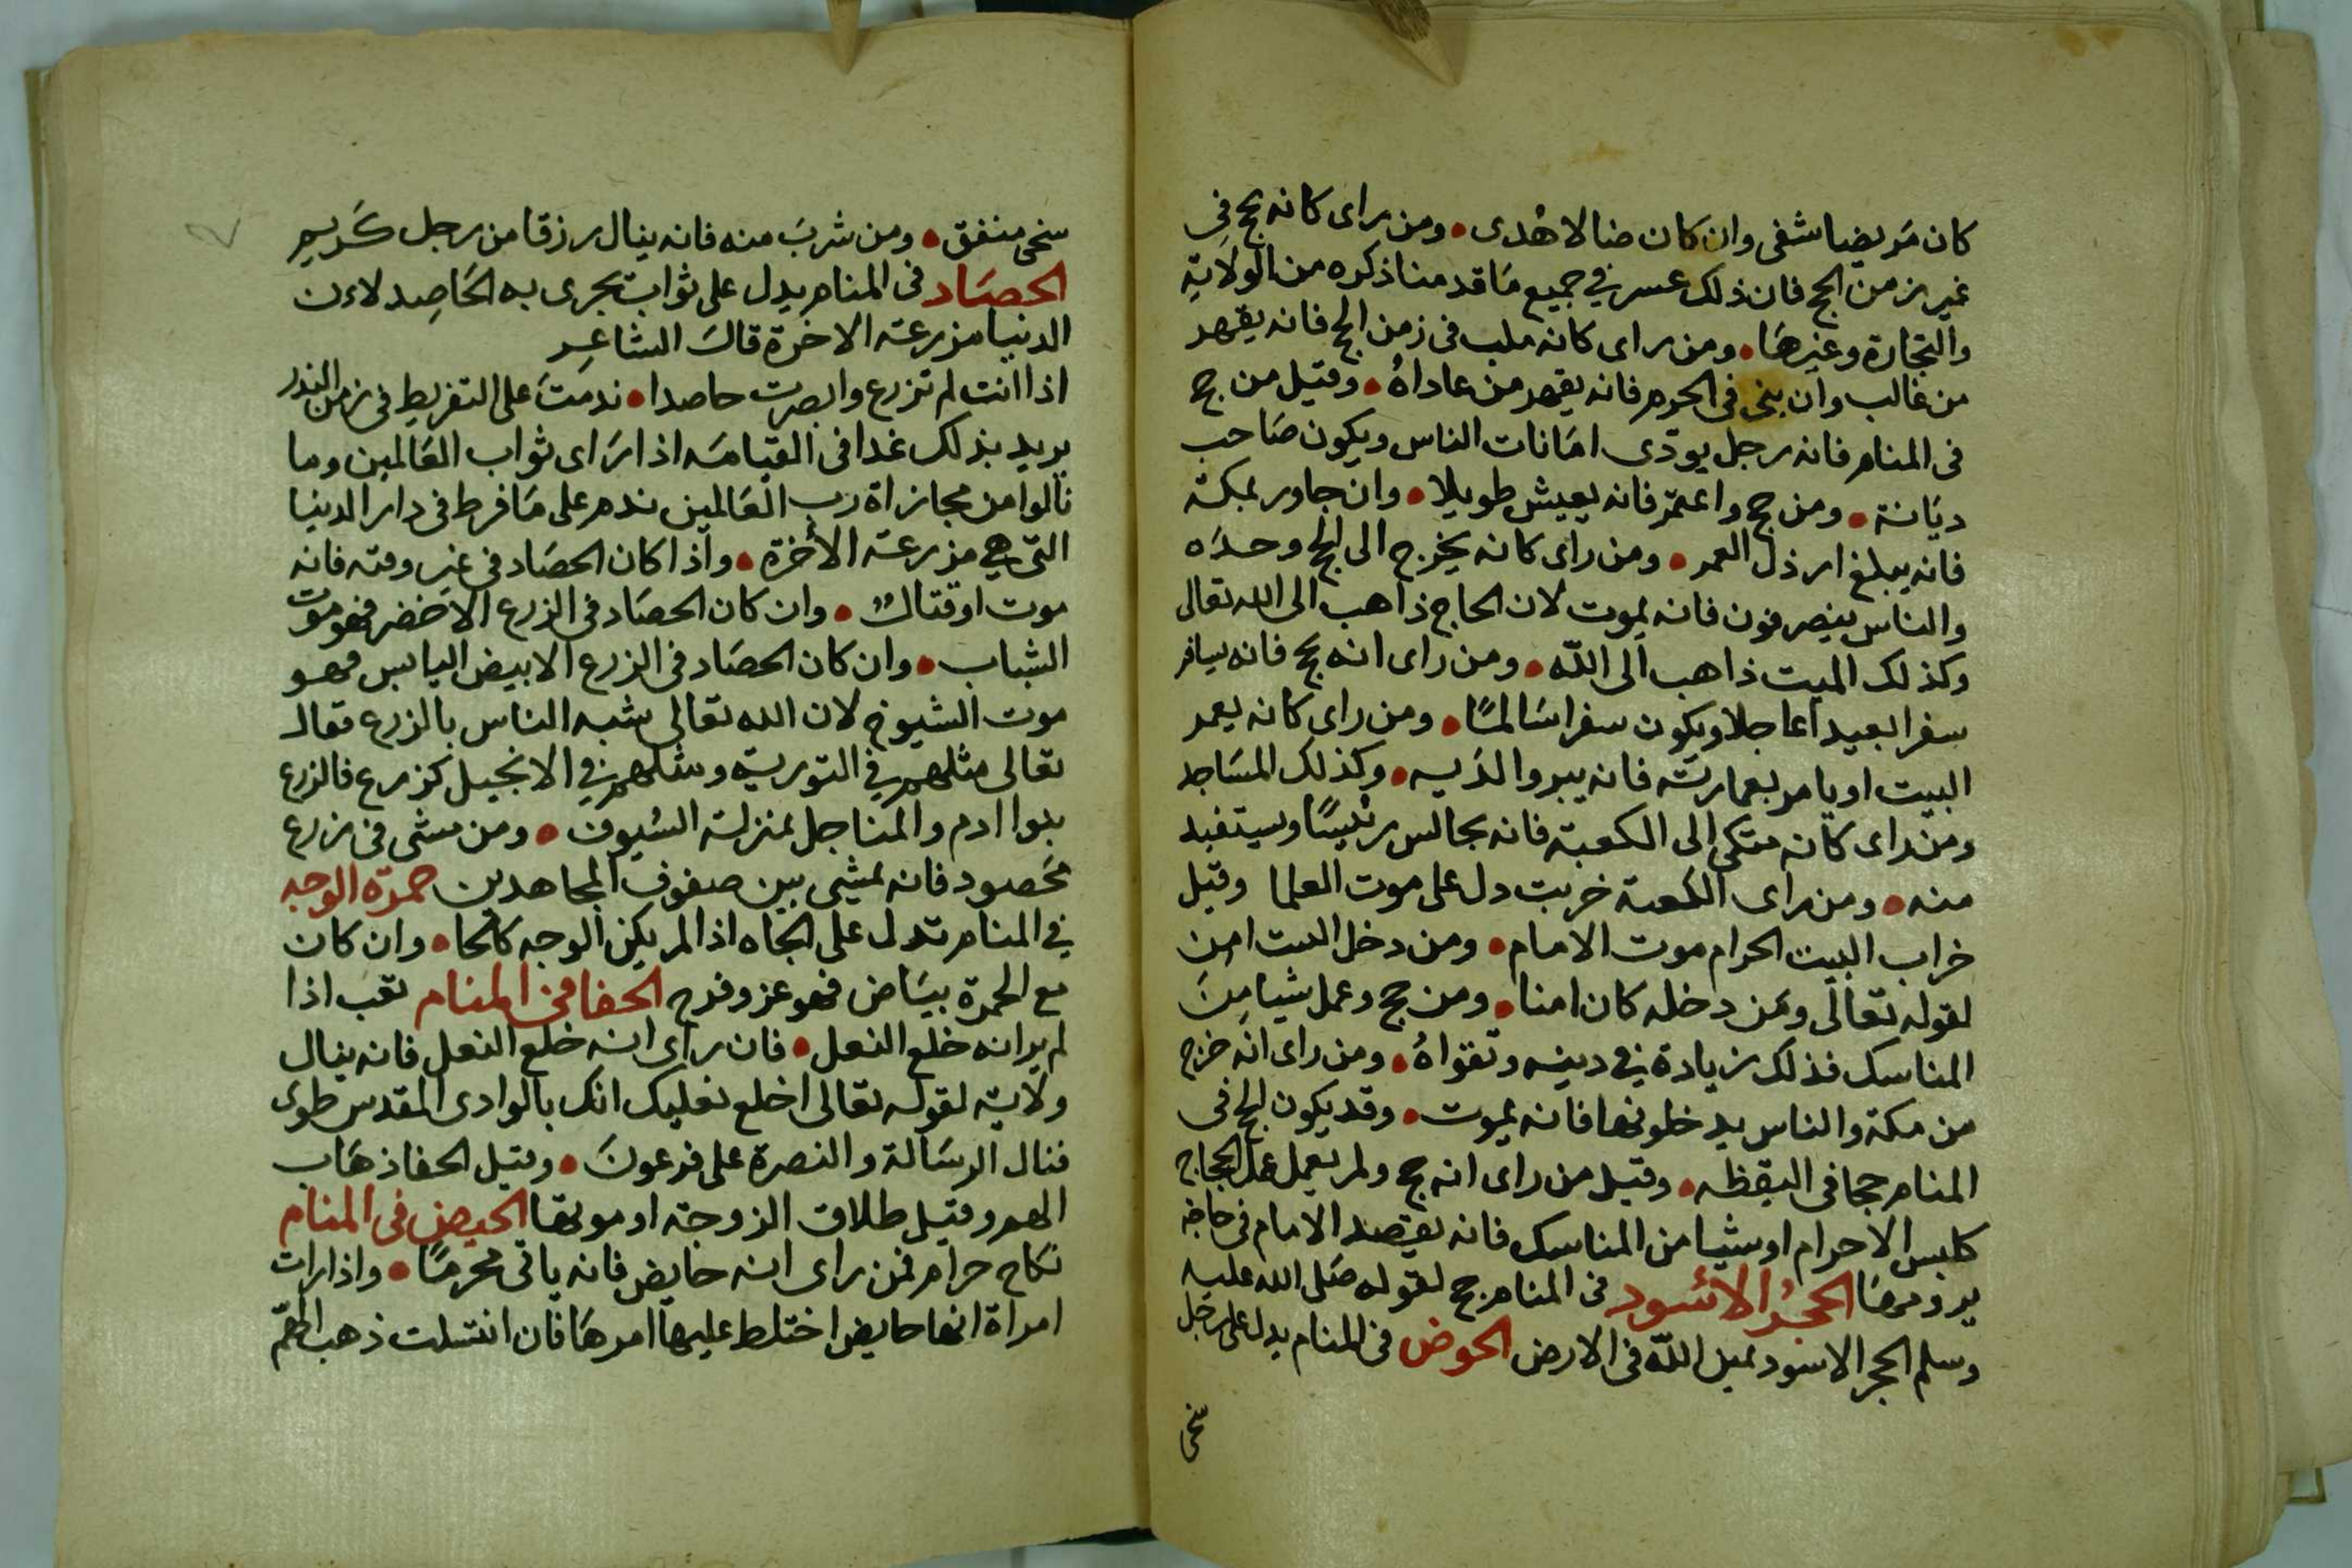 كان مريضا شفى وان كان ضالا هُدى • ومن راى كانه يحج في
غير زمن الحج فان ذلك عسر في جميع مَا قدمنا ذكره من الولاية
والتجارة وغيرهَا • ومن راى كانه ملب فى زمن الحج فانه يقهر
من غالب وان بنى فى الحرم فانه يقهر من عاداهُ • وقيل من حج
فى المنام فانه رجل يودى امَانات الناس ويكون صَاحب
ديَانة • ومن حج واعتمر فانه يعيش طويلا • وان جاور بمكة
فانه يبلغ ارذل العمر • ومن راى كانه يخرج الى الحج وحدَه
والناس ينصرفون فانه يموت لان الحاج ذاهب الى الله تعالى
وكذلك الميت ذاهب الى الله • ومن راى انه يحج فانه يسافر
سفرا بعيدا عاجلا ويكون سفرا سَالمًا • ومن راى كانه يعمر
البيت او يامر بعمارته فانه يبر والدَيه • وكذلك المسَاجد
ومن راى كانه متكى الى الكعبة فانه يجالس رئيسًا ويستفيد
منه • ومن راى الكعبة خربت دل على موت العلما وقيل
خراب البيت الحرام موت الامام • ومن دخل البيت امن
لقوله تعالى ومَن دخله كان امنا • ومن حج وعمل شيا مِنَ
المناسك فذلك زيادة في دينه وتقواهُ • ومن راى انه خرج
من مكة والناس يدخلونها فانه يموت • وقد يكون الحج فى
المنام حجا فى اليقظه • وقيل من راى انه حج ولم يعمل عمل الحجاج
كلبس الاحرام او شيا من المناسك فانه يقصد الامام فى حاجة
يرومهَا الحجرُ الاسْود فى المنام حج لقوله صَلى الله عليه
وسلم الحجر الاسود يمين الله فى الارض الحوض فى المنام يدل على رجل
سخى
سخى منفق • ومن شربَ منه فانه ينال رزقا من رجل كَريم
الحصَاد فى المنام يدل على ثواب يجرى به الحَاصِد لان
الدنيا مزرعة الاخرة قالَ الشاعِر
اذا انت لم تزرع وابصرت حاصدا • ندمتَ على التفريط فى زمن البذر
يريد بذلك غدا فى القيامَه اذا رَاى ثواب العَالمين وما
نالوا من مجازاة رب العَالمين ندم على مَا فرط فى دار الدنيا
التي هي مزرعة الأخرة • واذا كان الحصَاد فى غير وقته فانه
موت او قتالٌ • وان كان الحصَاد فى الزرع الاخضر فهو موت
الشباب • وان كان الحصَاد فى الزرع الابيض اليابس فهو
موت الشيوخ لان الله تعالى شبه الناس بالزرع فقال
تعالى مثلهم في التورية ومثلهم في الانجيل كزرع فالزرع
بنوا ادم والمناجل بمنزلة السُيوف • ومن مشى فى زرع
مَحصود فانه يمشي بين صفوف المجاهدين حمرة الوجه
في المنام تدل على الجَاه اذا لم يكن الوجه كالحا • وان كان
مع الحمرة بيَاض فهو عز وفرح الحفا فى المنام تعب اذا
لم ير انه خلع النعل • فان راى انه خلع النعل فانه ينال
ولاية لقوله تعالى اخلع نعليك انك بالوادى المقدس طوى
فنال الرسَالة والنصرة على فرعونَ • وقيل الحفا ذهَاب
الهم وقيل طلاق الزوجة او موتها الحيض فى المنام
نكاح حرام فمن راى انه حايض فانه ياتى محرمًا • واذا رات
امراة انها حايض اختلط عليها امرهَا فان اغتسلت ذهب الهمّ